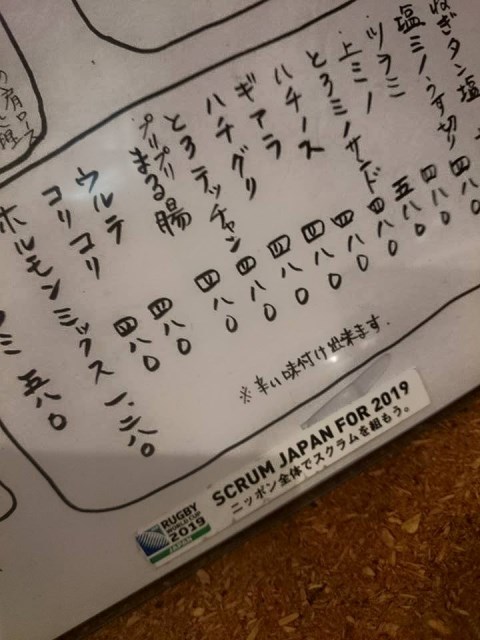 ねぎタン塩
塩ミノうす切り 四八〇
ツラミ 四八〇
上ミノ 五八〇
とろミノサンド 四八〇
ハチノス 四八〇
ギアラ 四八〇
ハチグリ 四八〇
とろテッチャン 四八〇
プリプリまる腸 四八〇
ウルテ 四八〇
コリコリ 四八〇
ホルモンミックス 一、二八〇
ミ 五八〇
※辛い味付け出来ます.
RUGBY
WORLD CUP
2019
JAPAN
SCRUM JAPAN FOR 2019
ニッポン全体でスクラムを組もう。